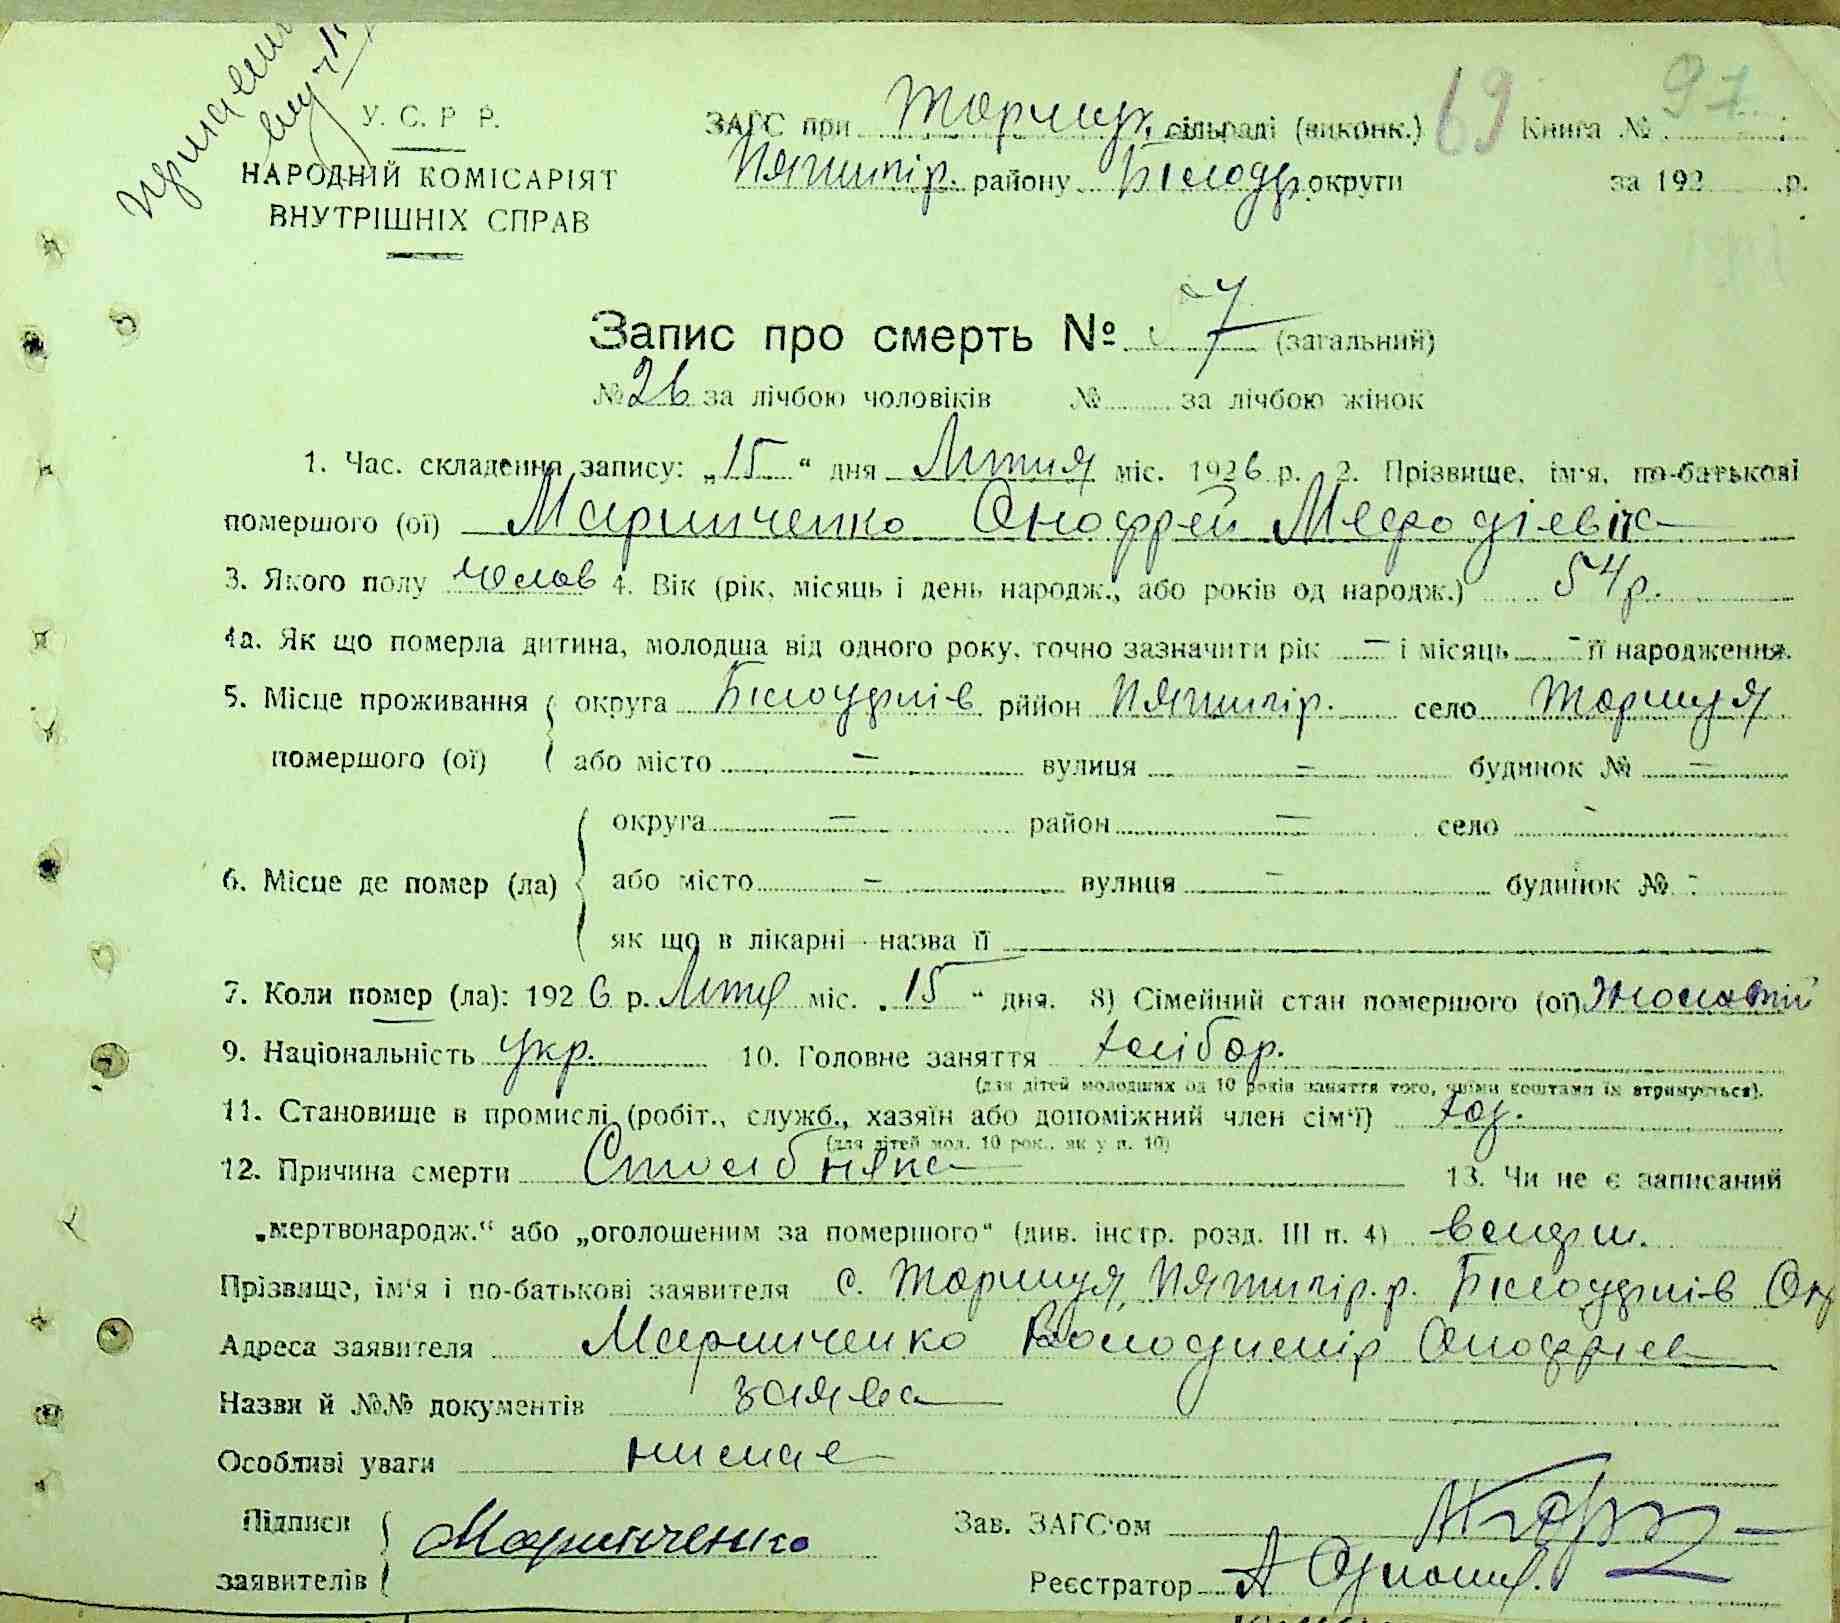 У. С. Р Р.
НАРОДНІЙ КОМІСАРІЯТ
ВНУТРІШНІХ СПРАВ
ЗАГС при Торицк. сільраді (виконк.) 69 Книга № 97
Пятигір. району Білоцр. округи за 192 р.
Запис про смерть № 7 (загальний)
№ 26 за лічбою чоловіків № за лічбою жінок
1. Час. складення запису: „15“ дня Лютня міс. 1926 р. 2. Прізвище, ім'я, по-батькові
помершого (ої) Маринченко Онофрей Мефодіевіч
3. Якого полу Чолов 4. Вік (рік, місяць і день народж., або років од народж.) 54 р.
4а. Як що померла дитина, молодша від одного року, точно зазначити рік — і місяць - її народження.
5. Місце проживання округа Білоцрків рийон Пятигір. село Ториця
помершого (ої) або місто — вулиця — будинок № —
округа — район — село -
6. Місце де помер (ла) або місто — вулиця - будинок № -
як що в лікарні - назва її
7. Коли помер (ла): 1926 р. Лютя міс. „15“ дня. 8) Сімейний стан помершого (ої) жонатий
9. Національність укр. 10. Головне заняття хлібор.
(для дітей молодших од 10 років заняття того, чиїми коштами їх втримується).
11. Становище в промислі (робіт., служб., хазяїн або допоміжний член сім'ї) хаз.
(для дітей мол. 10 рок., як у п. 10)
12. Причина смерти Столбняка 13. Чи не є записаний
„мертвонародж.“ або „оголошеним за помершого“ (див. інстр. розд. III п. 4)
Прізвище, ім'я і по-батькові заявителя с.Ториця, Пятигір. р. Білоцрків Окр
Адреса заявителя Маринченко Володимір Онофріев
Назви й №№ документів заява
Особливі уваги нимае
Підписи Маринченко Зав. ЗАГС'ом
заявителів Реєстратор А